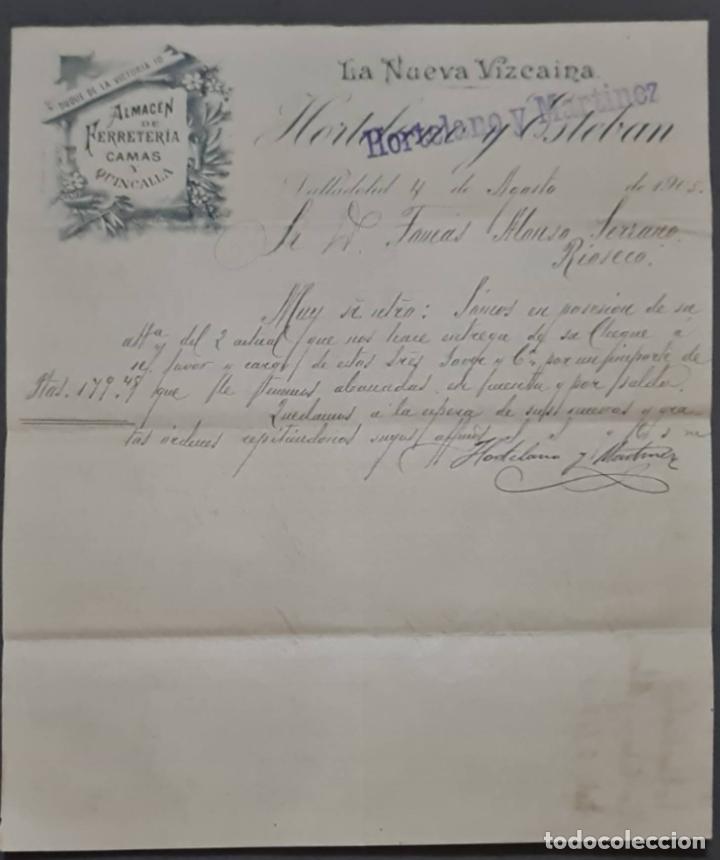 DUQUE DE LA VICTORIA 10
ALMACÉN
DE
FERRETERÍA
CAMAS
Y
QUINCALLA
La Nueva Vizcaina
Hortelano y Esteban
Hortelano y Martinez
Valladolid 4 de Agosto de 1905.
Sr D. Tomás Alonso Serrano.
Rioseco.
Muy sr ntro: Somos en posesion de su
atta del 2 actual que nos hace entrega de su Cheque a
n/ favor y cargo de estos Sres Jover y Ca por un importe de
Ptas. 179.45 que le tenemos abonadas en cuenta y por saldo.
Quedamos a la espera de sus nuevas y gra-
tas órdenes repitiéndonos suyos affmos
Hortelano y Martinez
todocoleccion.net